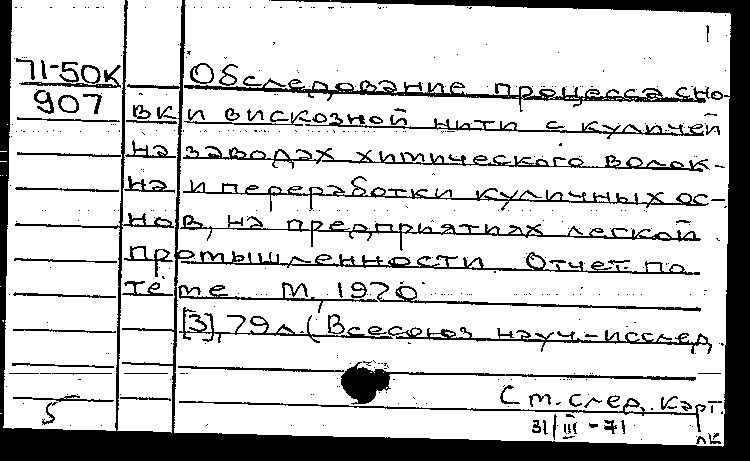 1
71-50к
907
Обследование процесса сно-
вки вискозной нити с куличей
на заводах химического волок-
на и переработки куличных ос-
нов, на предприятиях легкой
промышленности. Отчет по
теме. М., 1970
[3], 79 л. (Всесоюз. науч.-исслед.
См. след. карт.
5
31/III-71
лк